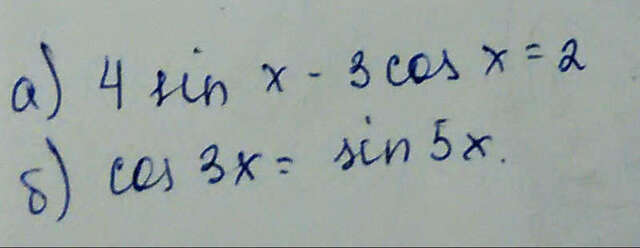 а) 4 sin x - 3 cos x = 2
б) cos 3x = sin 5x.